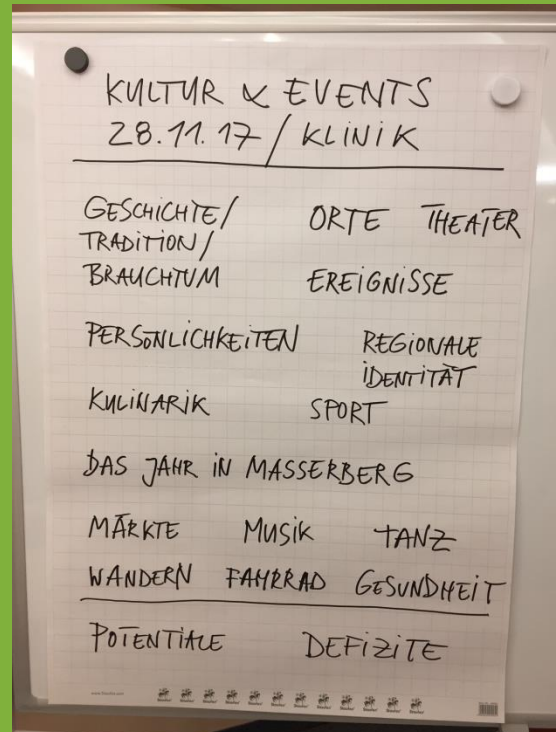 KULTUR & EVENTS
28.11.17 / KLINIK
GESCHICHTE/ ORTE THEATER
TRADITION/
BRAUCHTUM EREIGNISSE
PERSÖNLICHKEITEN REGIONALE
IDENTITÄT
KULINARIK SPORT
DAS JAHR IN MASSERBERG
MÄRKTE MUSIK TANZ
WANDERN FAHRRAD GESUNDHEIT
POTENTIALE DEFIZITE